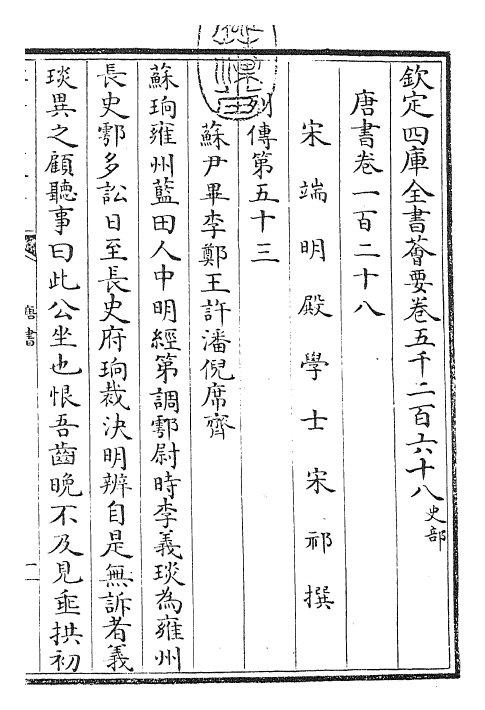 欽定四庫全書薈要卷五千二百六十八史部
唐書卷一百二十八
宋端明殿學士宋祁撰
列傳第五十三
蘇尹畢李鄭王許潘倪席齊
蘇珦雍州藍田人中明經第調鄠尉時李義琰為雍州
長史鄠多訟日至長史府珦裁決明辨自是無訴者義
琰異之顧聽事曰此公坐也恨吾齒晚不及見垂拱初
唐書